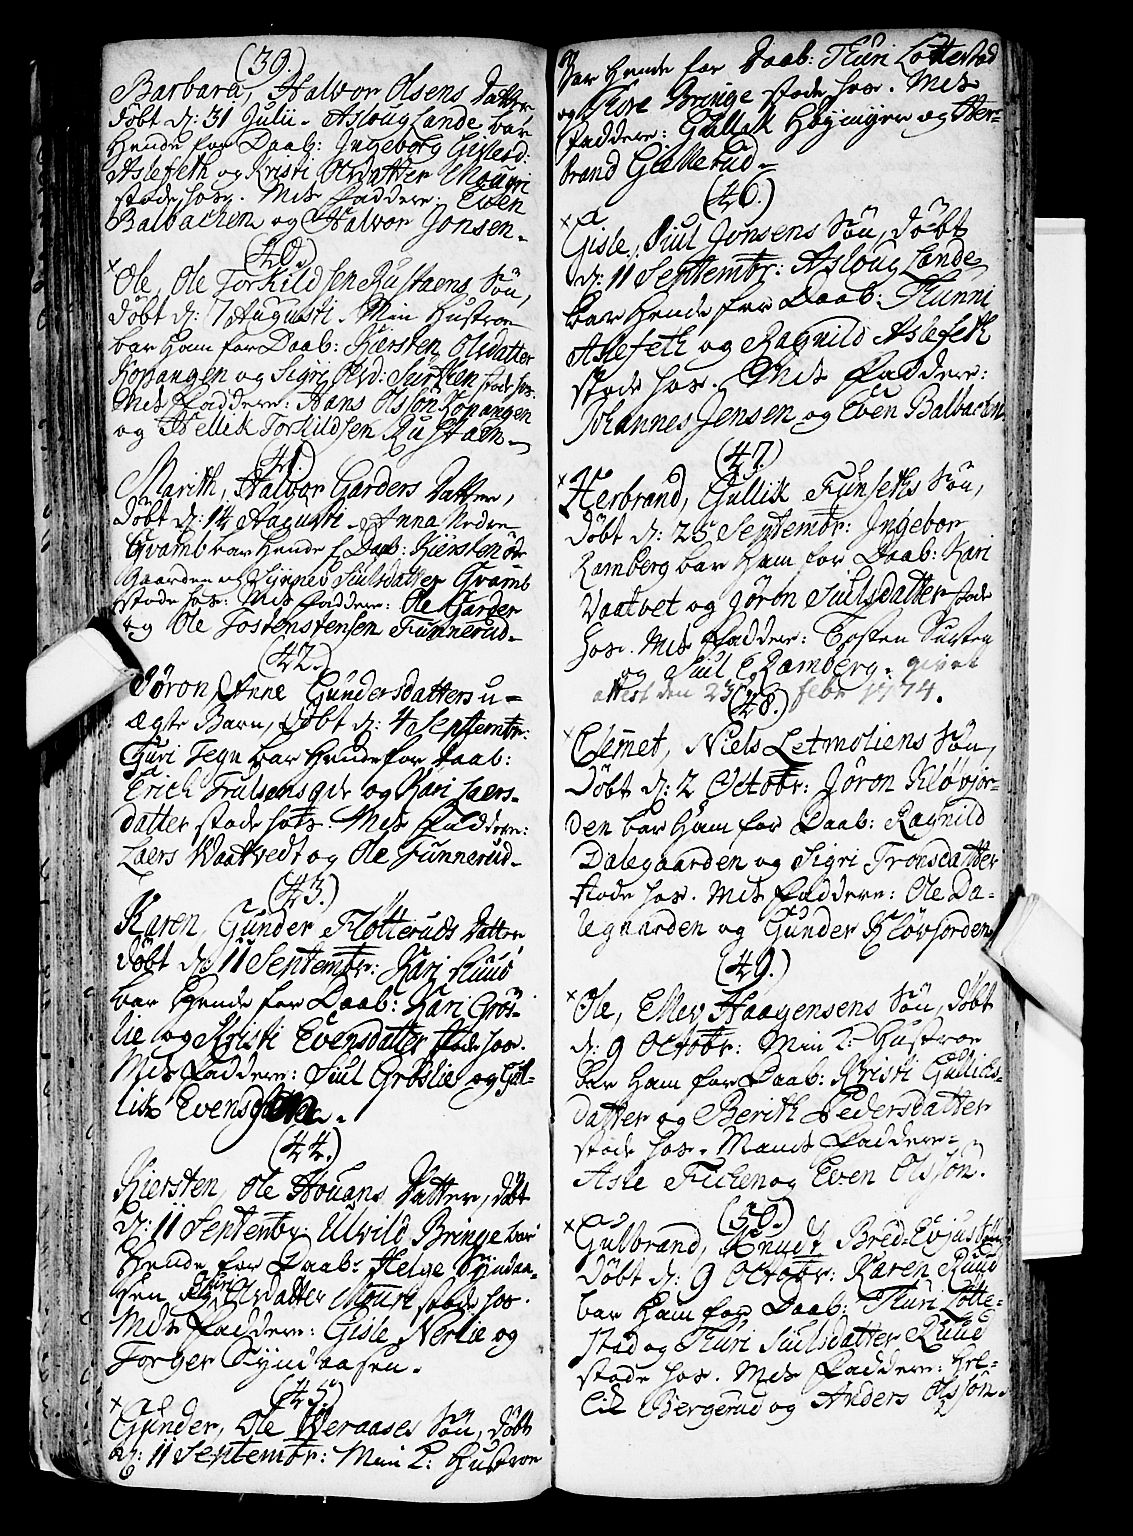 (39.)
Barbara, Halvor Olsens Datter
döbt d: 31 Julii. Asloug Lande bar
Hende for Daab: Ingeborg Gislesd:
Aslefeth og Kristi Olsdatter Mouri
stode hos. Mds faddere: Even
Balbachen og Halvor Jonsen.
(40.)
Ole, Ole Torkildsen Rustaens Sön,
döbt d: 7 Augusti. Min Hustroe
bar Ham for Daab: Kiersten Olsdatter
Kopangen og Sigri Olsd: stode hos.
Mds Faddere: Hans Olssön Kopangen
og Hellik Torkildsen Rustaen.
(41.)
Marith, Halvor Garders Datter,
döbt d: 14 Augusti. Anna Nedre
Qvamb bar Hende f Daab: Kiersten Öde-
Gaarden og Siulsdatter Qvamb
stode hos. Mds faddere: Ole Garder
og Ole Tostensensen Funnerud.
(42.)
Jöron, Anne Gundersdatters u-
ægte Barn, döbt d: 4 Septembr:
Guri Tegn bar Hende for Daab:
Erich og Kari Laers-
datter stode hos. Mds Faddere:
Laers Waatvedt og Ole Funnerud.
(43.)
Karen, Gunder Flötteruds Datter
döbt d: 11 Septembr: Kari Ruud
bar Hende for Daab: Kari Grös-
lie og Kristi Evensdatter stode hos.
Mds Faddere: Siul Gröslie og Gul-
lik Evens
(44.)
Kiersten, Ole Houans Datter, döbt
d: 11 Septembr: Ulvild Bringe bar
Hende for Daab: Helge Syndaa-
sen og Guri Olsdatter Mouri stode hos.
Mds Faddere: Gisle Nerlie og
Torger Syndaasen.
(45.)
Gunder, Ole Weraases Sön, döbt
d: 11 Septembr: Min 2: Hustroe
bar Hende for Daab: Thuri Löttestad
og Thore Bringe stode hos. Mds
faddere: Gullik Höyingen og Her-
brand Gullerud.
(46.)
Gisle, Siul Jonsens Sön, döbt
d: 11 Septembr: Asloug Lande
bar Hende for Daab: Thunni
Aslefeth og Ragnild Aslefeth
stode hos. Mds Faddere:
Johannes Jensen og Even Balbachen
(47.)
Herbrand, Gullik Funseths Sön,
döbt d: 25 Septembr: Ingebor
Ramberg bar Ham for Daab: Kari
Vaatvet og Jöron Siulsdatter stode
hos. Mds Faddere: Tosten
og Siul Ramberg. givet
attest den 23 febr 1774.
(48.)
Clemet, Niels Letmoliens Sön,
Döbt d: 2 Octobr: Jöron Klövjor-
den bar Ham for Daab: Ragnild
Dalegaarden og Sigri Tronsdatter
stode hos. Mds Faddere: Ole Da-
legaarden og Gunder Klövjorden
(49.)
Ole, Ellev Haagensens Sön, döbt
d: 9 Octobr: Min 2: Hustroe
bar Ham for Daab: Kristi Gulliks-
datter og Berith Pedersdatter
stode hos. Mands Faddere:
Asle og Even Olssön.
(50.)
Gulbrand, Knud Bred-Evju
Döbt d: 9 Octobr: Karen Ruud
bar Ham for Daab: Thuri Lötte-
stad og Thuri Siulsdatter Ruud
stode hos. Mds Faddere: Hel-
lik Bergerud og Anders Olssön.